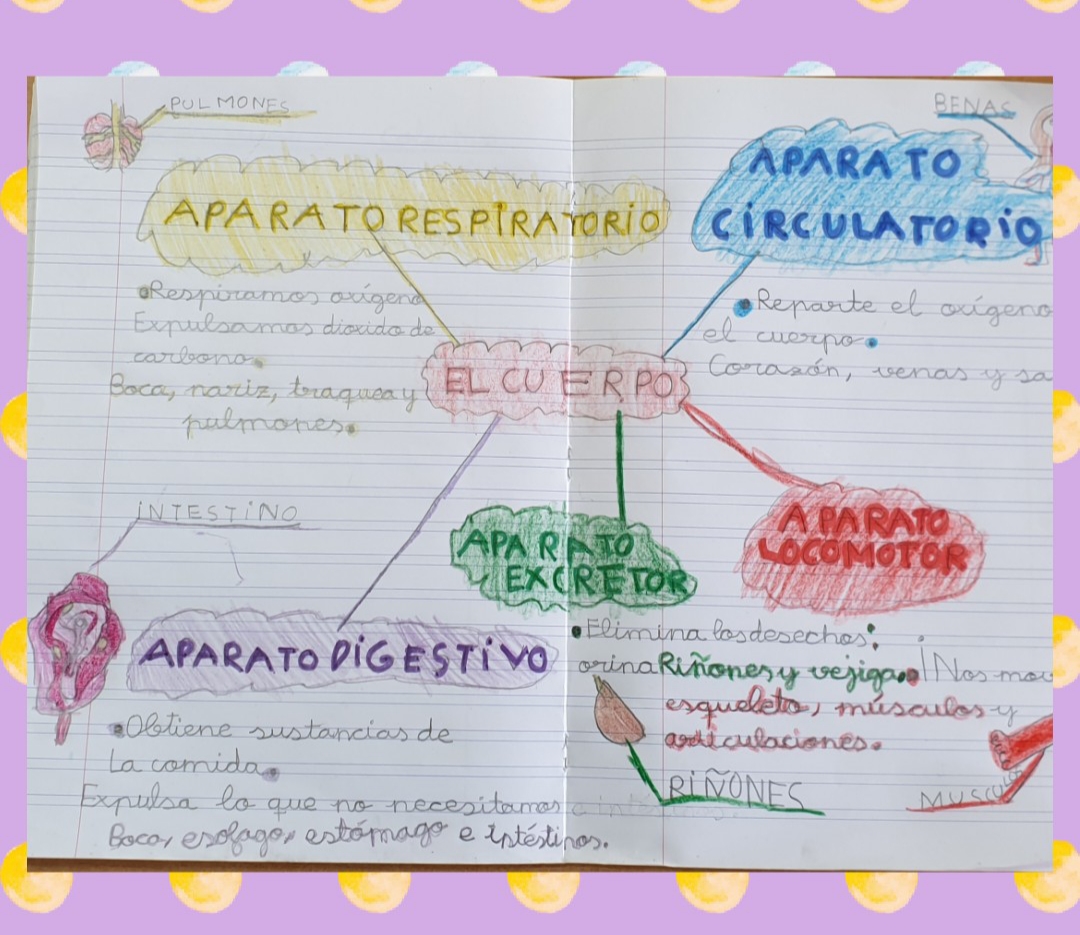 PULMONES
APARATO RESPIRATORIO
Respiramos oxígeno
Expulsamos dioxido de
carbono.
Boca, nariz, traquea y
pulmones.
BENAS
APARATO
CIRCULATORIO
Reparte el oxígeno
el cuerpo.
Corazón, venas y sa
EL CUERPO
INTESTINO
APARATO DIGESTIVO
Obtiene sustancias de
La comida.
Expulsa lo que no necesitamos
Boca, esofago, estómago e intéstinos.
APARATO
EXCRETOR
Elimina los desechos:
orina Riñones y vejiga.
RIÑONES
APARATO
LOCOMOTOR
Nos mov
esqueleto, músculos y
articulaciones.
MUSCULO